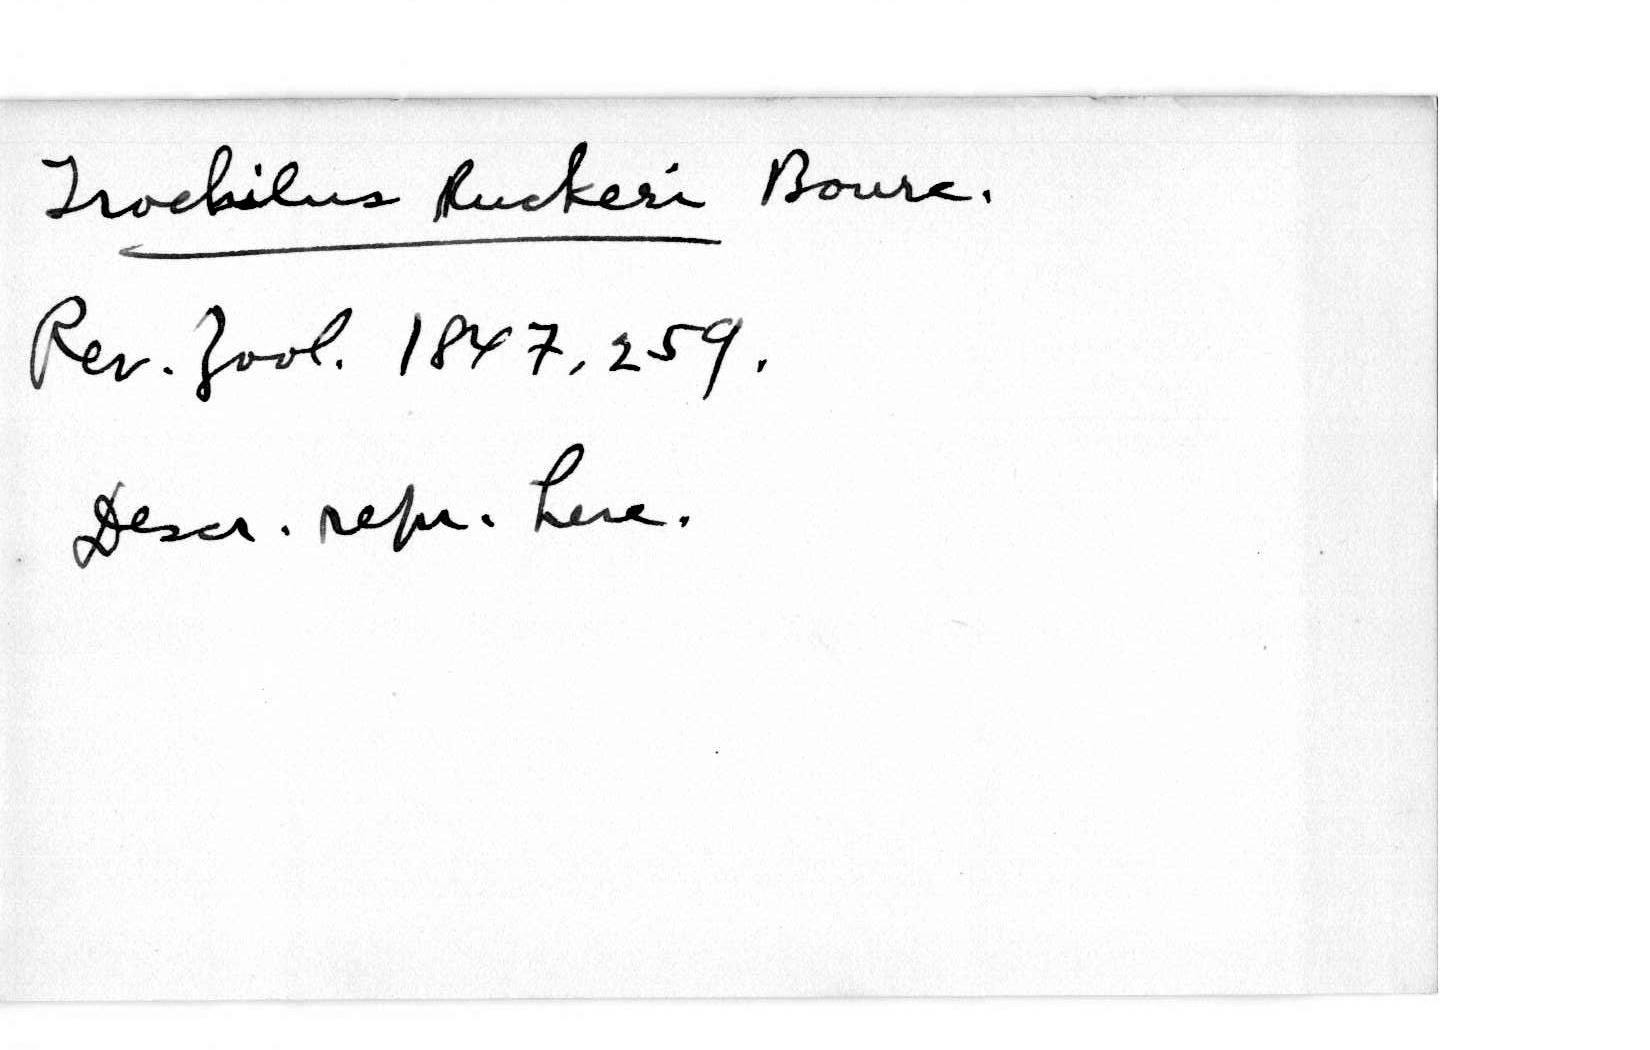 Trochilus Ruckeri Bourc.
Rev. Zool. 1847, 259.
Descr. repr. here.